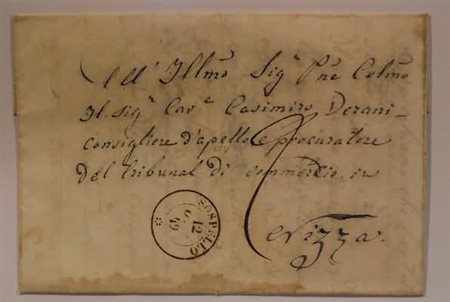 All' Illmo Sigr Pne Colmo
Il sigr Cave Casimiro Derani-
consigliere d'apello e procuratore
del tribunal di commercio in
Nizza.
SOSPELLO
12